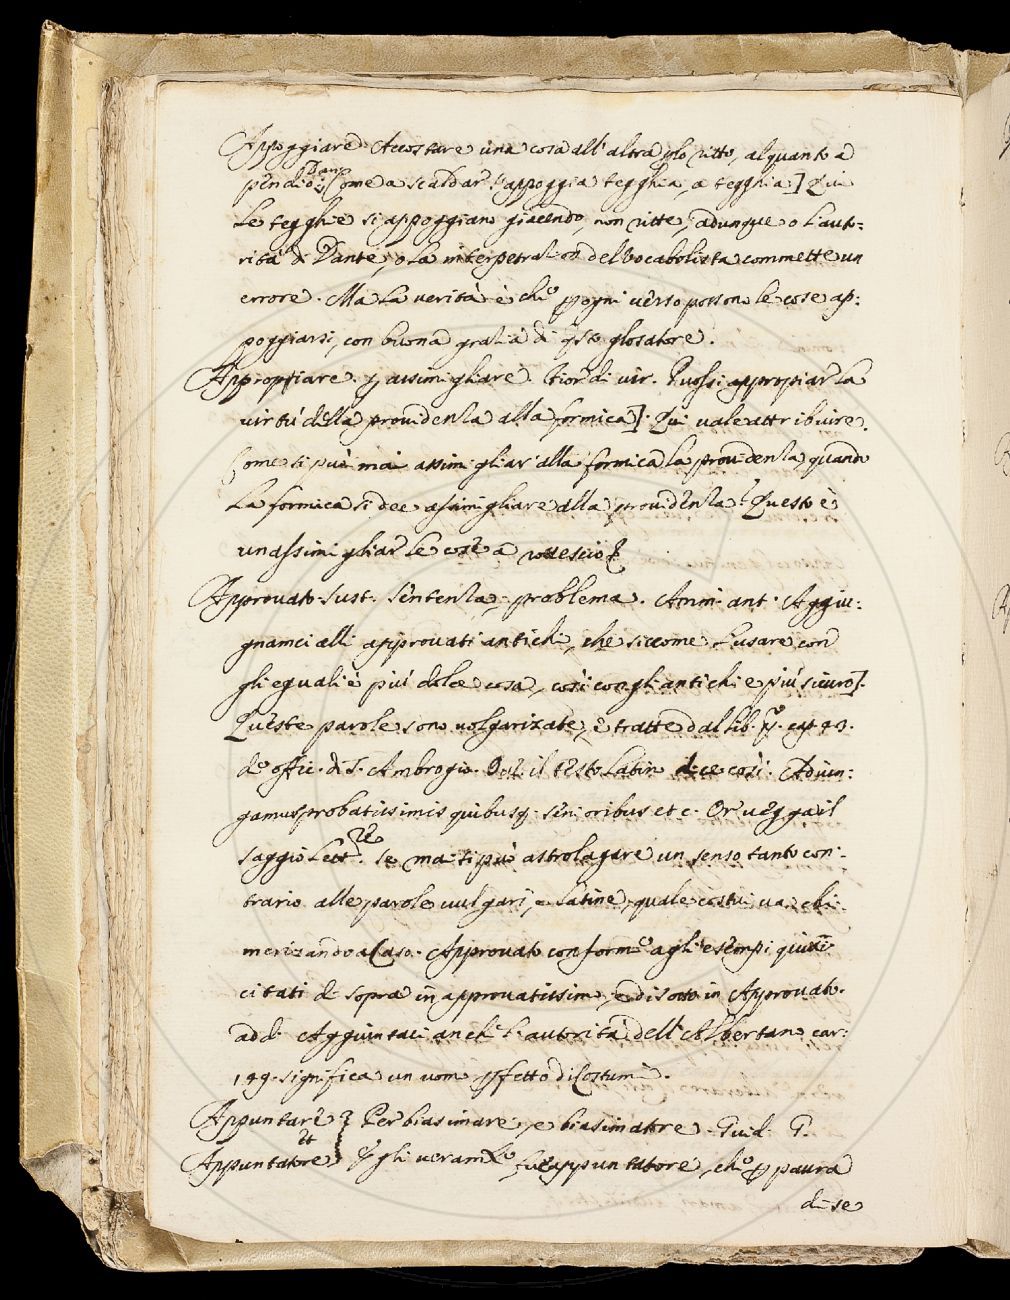 Appoggiare. Accostare una cosa all'altra plo ritto, alquanto a
pendio. Dan. Come a scaldar s'appoggia tegghia a tegghia] Qui
le tegghie si appoggiano giacendo, non ritte, adunque o l'auto-
rità di Dante, o la interpetration del Vocabolista commette un
errore. Ma la verità è che p ogni verso possono le cose ap-
poggiarsi, con buona gratia di qsto glosatore.
Appropriare. p assimigliare. Fior. di vir. Puossi appropiar la
virtù della providenza alla formica]. Qui vale attribuire.
Come si può mai assimigliar alla formica la providenza, quando
la formica si dee assimigliare alla providenza? Questo è
un assimigliar le cose a rovescio
Approvato. Sust. Sentenza, problema. Amm. ant. Aggiu-
gnamci alli approvati antichi, che siccome l'usare con
gli eguali è più dolce cosa, così con gli antichi e più sicuro].
Queste parole sono volgarizate, e tratte dal lib. p.o cap. 43.
de offic. di S. Ambrogio. il testo Latin dice così. Adiun-
gamus probatissimis quibusq. senioribus etc. Or vegga il
saggio Lett.re se mai si può astrolagare un senso tanto con-
trario alle parole vulgari, e latine, quale costui va chi-
merizando a caso. Approvato conforme agli esempi quivi
citati di sopra in approvatissimo, e di sotto in Approvato.
add. Aggiuntaci anche l'autorità dell'Albertano car.
149. significa un uomo pfetto di costumi.
Appuntare } Per biasimare, e biasimatore. Guid. G.
et
Appuntatore } Egli veramte fue appuntatore, che p paura
di se